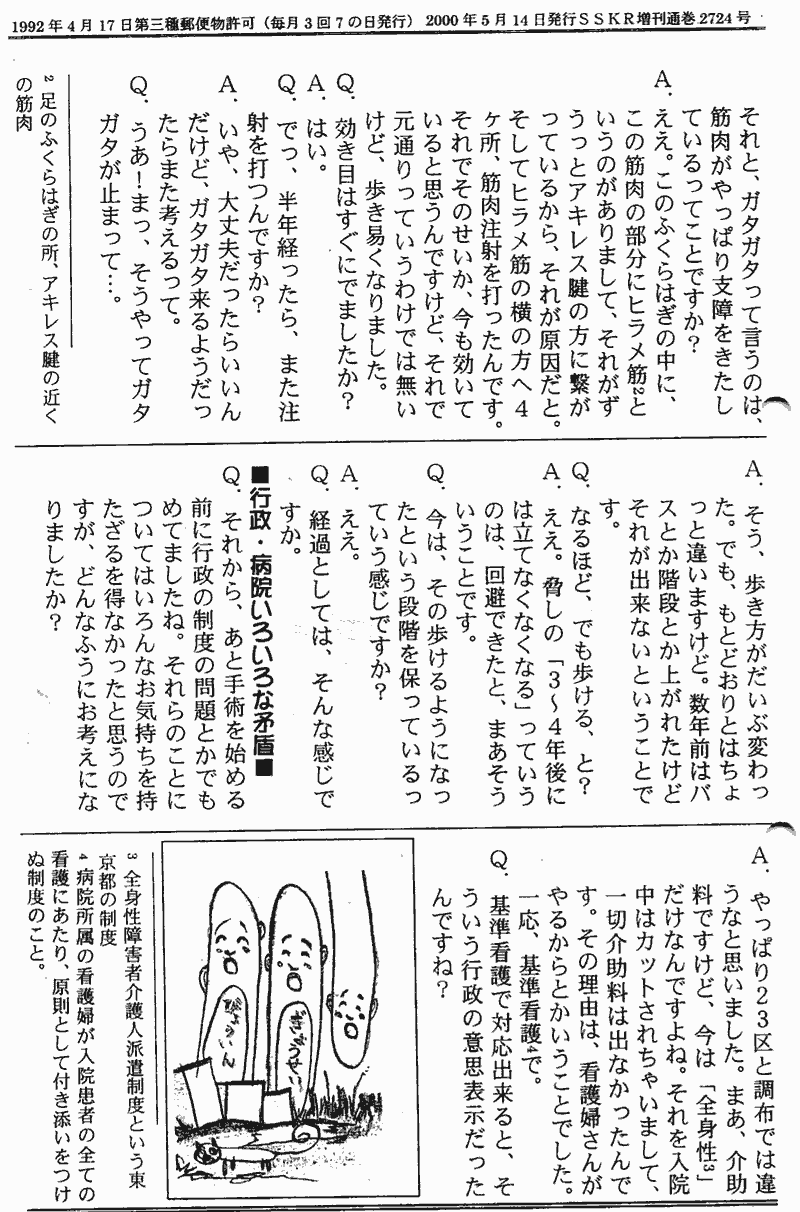 1992年4月17日第三種郵便物許可（毎月3回7の日発行） 2000年5月14日発行SSKR増刊通巻2724号
それと、ガタガタって言うのは、
筋肉がやっぱり支障をきたし
ているってことですか？
A．ええ。このふくらはぎの中に、
この筋肉の部分にヒラメ筋²と
いうのがありまして、それがず
うっとアキレス腱の方に繋が
っているから、それが原因だと。
そしてヒラメ筋の横の方へ４
ヶ所、筋肉注射を打ったんです。
それでそのせいか、今も効いて
いると思うんですけど、それで
元通りっていうわけでは無い
けど、歩き易くなりました。
Q．効き目はすぐにでましたか？
A．はい。
Q．でっ、半年経ったら、また注
射を打つんですか？
A．いや、大丈夫だったらいいん
だけど、ガタガタ来るようだっ
たらまた考えるって。
Q．うあ！まっ、そうやってガタ
ガタが止まって…。
² 足のふくらはぎの所、アキレス腱の近く
の筋肉
A．そう、歩き方がだいぶ変わっ
た。でも、もとどおりとはちょ
っと違いますけど。数年前はバ
スとか階段とか上がれたけど
それが出来ないということで
す。
Q．なるほど、でも歩ける、と？
A．ええ。脅しの「３～４年後に
は立てなくなくなる」っていう
のは、回避できたと、まあそう
いうことです。
Q．今は、その歩けるようになっ
たという段階を保っているっ
ていう感じですか？
A．ええ。
Q．経過としては、そんな感じで
すか。
■行政・病院いろいろな矛盾■
Q．それから、あと手術を始める
前に行政の制度の問題とかでも
めてましたね。それらのことに
ついてはいろんなお気持ちを持
たざるを得なかったと思うので
すが、どんなふうにお考えにな
りましたか？
A．やっぱり２３区と調布では違
うなと思いました。まあ、介助
料ですけど、今は「全身性³」
だけなんですよね。それを入院
中はカットされちゃいまして、
一切介助料は出なかったんで
す。その理由は、看護婦さんが
やるからとかいうことでした。
一応、基準看護⁴で。
Q．基準看護で対応出来ると、そ
ういう行政の意思表示だった
んですね？
ぎょうせい
びょういん
³ 全身性障害者介護人派遣制度という東
京都の制度
⁴ 病院所属の看護婦が入院患者の全ての
看護にあたり、原則として付き添いをつけ
ぬ制度のこと。